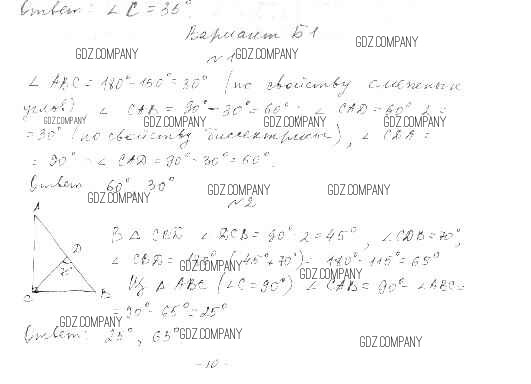 Ответ: ∠C = 35°.
Вариант Б1
GDZ.COMPANY
№1
GDZ.COMPANY GDZ.COMPANY
∠ABC = 180° - 150° = 30° (по свойству смежных
углов) ∠CAB = 90° - 30° = 60° ∠CAD = 60° : 2 =
GDZ.COMPANY GDZ.COMPANY GDZ.COMPANY GDZ.COMPANY
= 30° (по свойству биссектрисы), ∠CDA =
= 90° - ∠CAD = 90° - 30° = 60°.
Ответ: 60°, 30°
GDZ.COMPANY GDZ.COMPANY GDZ.COMPANY
№2
A
D
70°
C
B
В △ ∠DCB = 90° : 2 = 45°, ∠CDB = 70°,
∠CBD = 180° - (45° + 70°) = 180° - 115° = 65°
GDZ.COMPANY GDZ.COMPANY
Из △ABC (∠C = 90°) ∠CAB = 90° - ∠ABC =
= 90° - 65° = 25°
GDZ.COMPANY
Ответ: 25°, 65°
GDZ.COMPANY GDZ.COMPANY
- 10 -